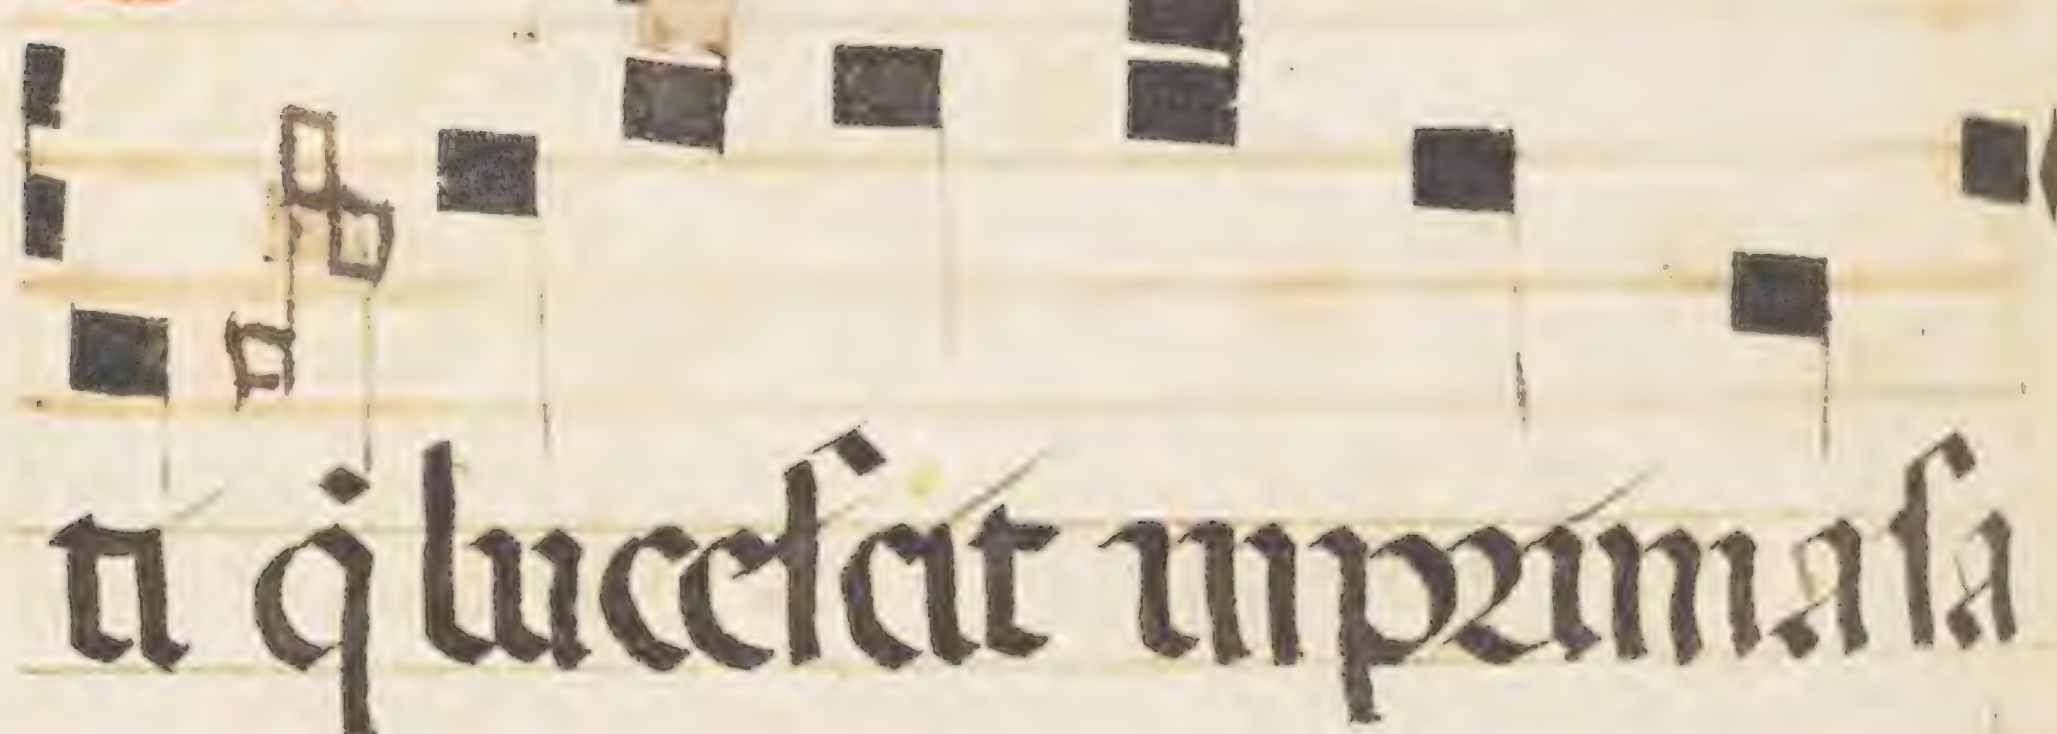 ti q̇ lucescit in prima sa